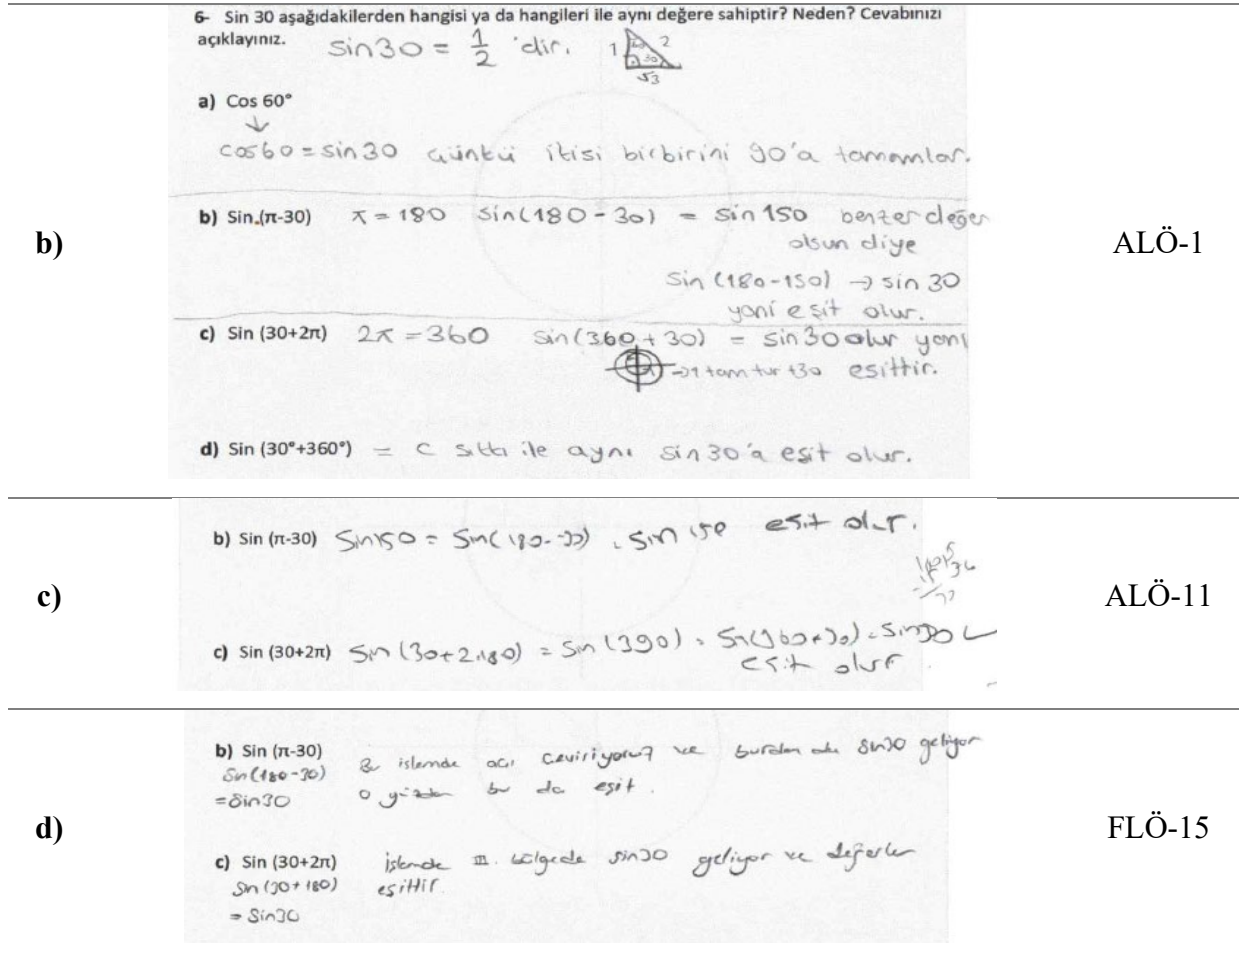 6- Sin 30 aşağıdakilerden hangisi ya da hangileri ile aynı değere sahiptir? Neden? Cevabınızı
açıklayınız. sin30 = 1/2 'dir. 1 60 2 30 √3
a) Cos 60°
↓
cos60 = sin30 çünkü ikisi birbirini 90'a tamamlar.
b)
b) Sin.(π-30) π = 180 sin(180 - 30) = sin 150 benzer değer
olsun diye
Sin (180-150) → sin 30
yani eşit olur.
ALÖ-1
c) Sin (30+2π) 2π = 360 sin(360 + 30) = sin30 olur yani
→1 tam tur +30 eşittir.
d) Sin (30°+360°) = c şıkkı ile aynı sin30'a eşit olur.
c)
b) Sin (π-30) Sin150 = Sin(180-30) = Sin 150 eşit olur.
ALÖ-11
c) Sin (30+2π) Sin (30+2.180) = Sin (390) = Sin(360+30) = Sin30
eşit olur.
d)
b) Sin (π-30) Bu işlemde açı çeviriyoruz ve burdan da sin30 geliyor
Sin(180-30) o yüzden bu da eşit.
=Sin30
FLÖ-15
c) Sin (30+2π) işlemde III. bölgede sin30 geliyor ve değerler
Sin (30+180) eşittir.
= Sin30